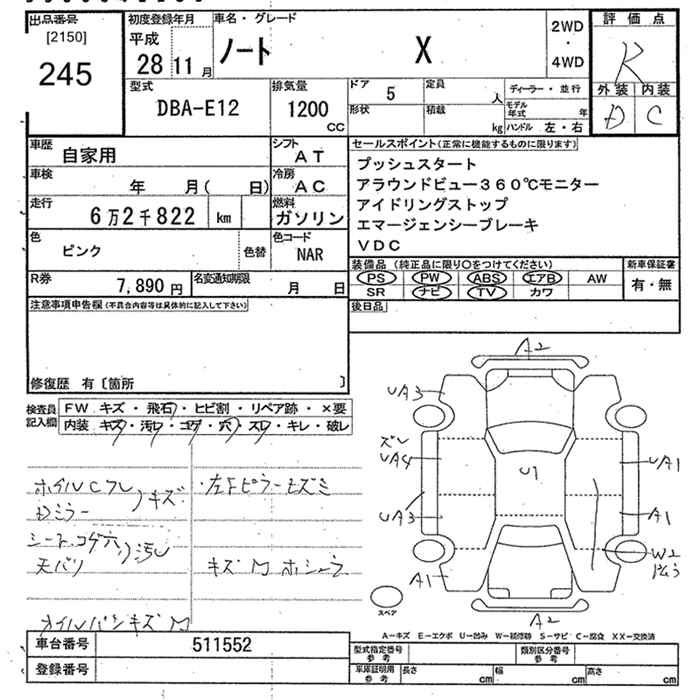 出品番号
[2150]
245
初度登録年月
平成
28 11 月
車名・グレード
ノート X
2WD
・
4WD
評価点
R
外装 内装
D C
型式
DBA-E12
排気量
1200
CC
ドア 5
形状
定員 人
積載 kg
ディーラー・並行
モデル年式 年
ハンドル 左・右
車歴
自家用
シフト
AT
車検
年 月( 日)
冷房
AC
走行
6万2千822 km
燃料
ガソリン
色
ピンク
色替
色コード
NAR
R券
7,890 円
名変通知期限
月 日
セールスポイント(正常に機能するものに限ります)
プッシュスタート
アラウンドビュー360℃モニター
アイドリングストップ
エマージェンシーブレーキ
VDC
装備品(純正品に限り○をつけてください)
PS PW ABS エアB AW
SR ナビ TV カワ
新車保証書
有・無
後日品
注意事項申告欄(不具合内容等は具体的に記入して下さい)
修復歴 有〔箇所 〕
検査員
記入欄
FW キズ・飛石・ヒビ割・リペア跡・×要
内装 キズ・汚レ・コゲ・穴・スレ・キレ・破レ
ホイルCフレ
Dミラー
キズ
シート コゲ穴
天バリ
汚レ
オイルパンキズM
キズM
A2
UA3
ズレ
UA4
UA3
A1
U1
UA1
A1
W2
A2
スペア
A-キズ E-エクボ U-凹み W-補修跡 S-サビ C-腐食 XX-交換済
車台番号
511552
登録番号
型式指定番号
参考
類別区分番号
参考
車庫証明用
参考
長さ cm
幅 cm
高さ cm